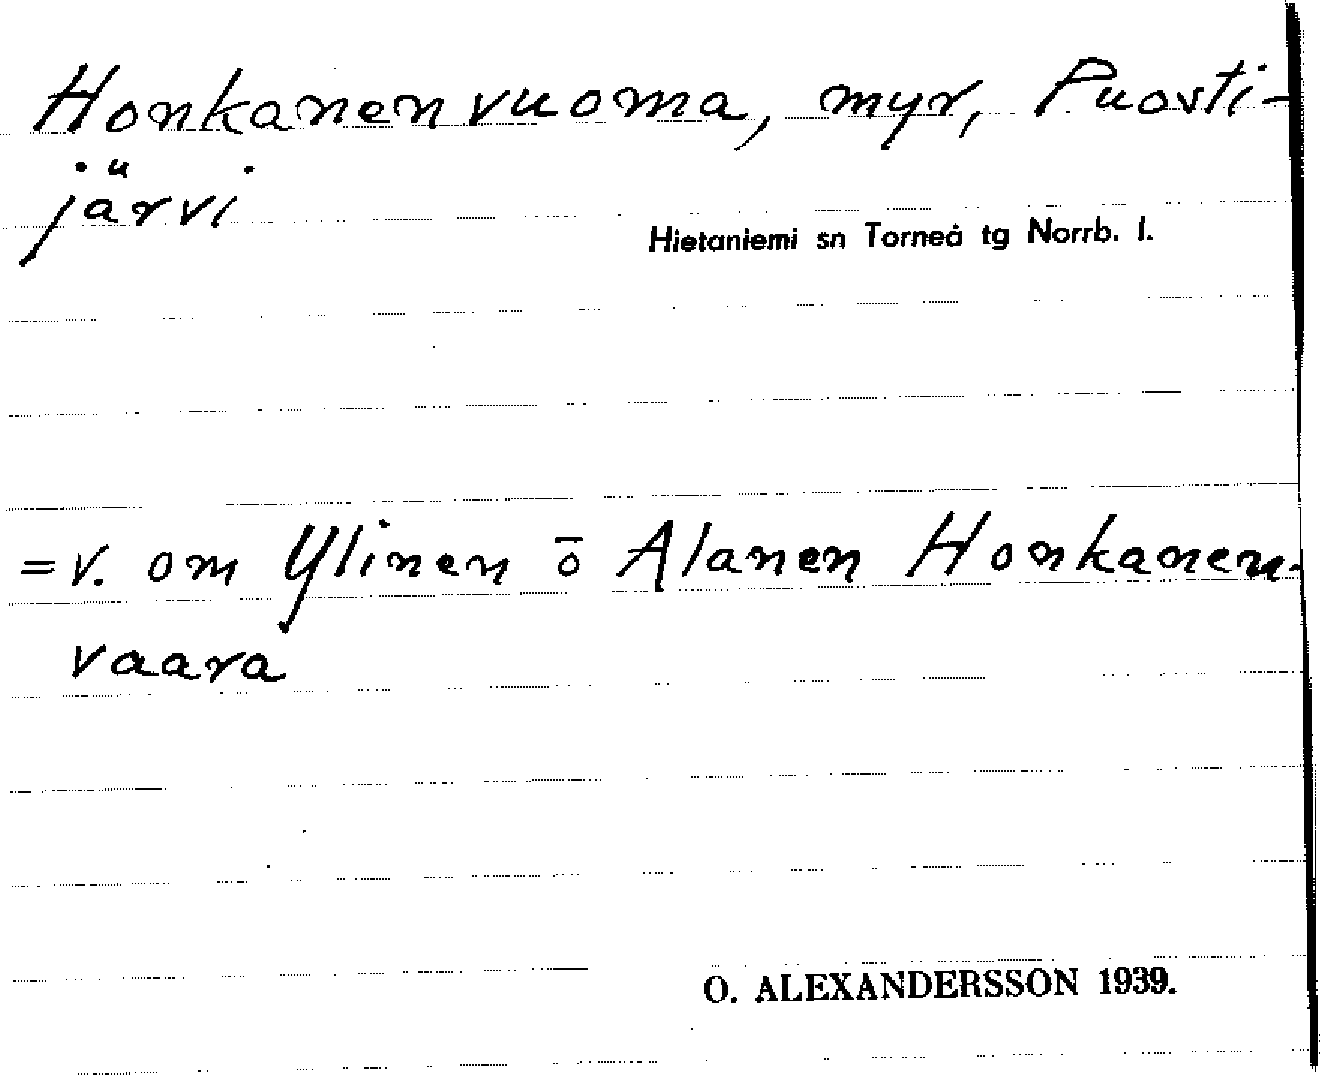 Honkanenvuoma, myr, Puosti-
järvi
Hietaniemi sn Torneå tg Norrb. l.
= v. om Ylinen o̅ Alanen Honkanen-
vaara
O. ALEXANDERSSON 1939.